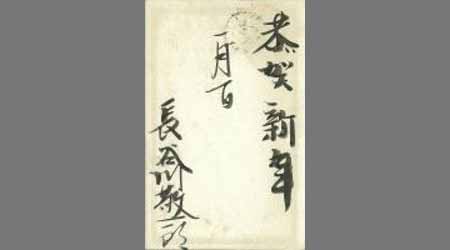 恭賀新年
一月一日
長谷川敬一郎